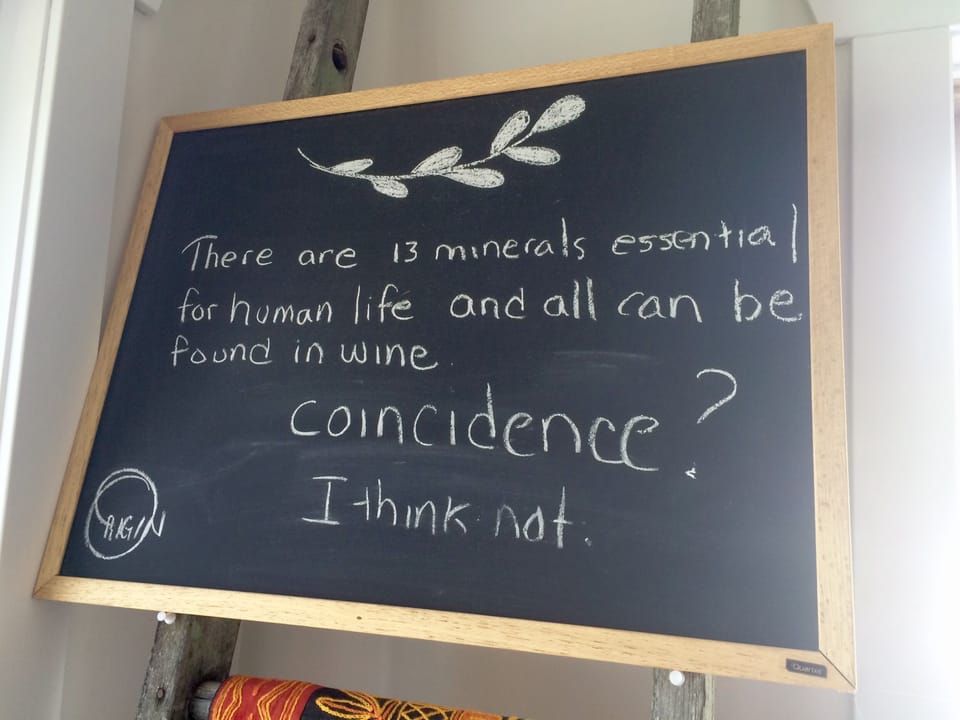 There are 13 minerals essential
for human life and all can be
found in wine.
coincidence?
I think not.
ORIGIN
Quartet